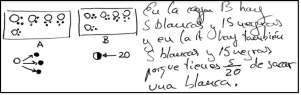 En la cajan B hay
5 blancas y 15 negras
y en la A hay también
5 blancas y 15 negras
porque tienes 5/20 de sacar
una blanca.
A
B
20